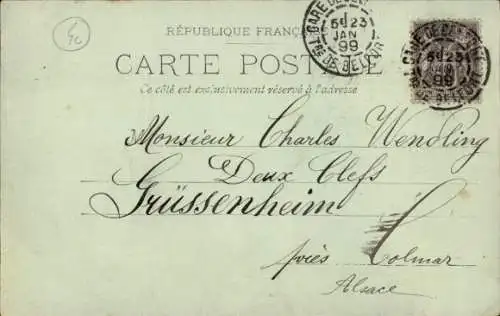 4c
RÉPUBLIQUE FRANÇ
GARE DE
5E 23
JAN
99
DE BELFORT
GARE DE
5E 23
JAN
99
CARTE POSTALE
Ce côté est exclusivement réservé à l'adresse
Monsieur Charles Wendling
Deux Clefs
Grüssenheim
près Colmar
Alsace